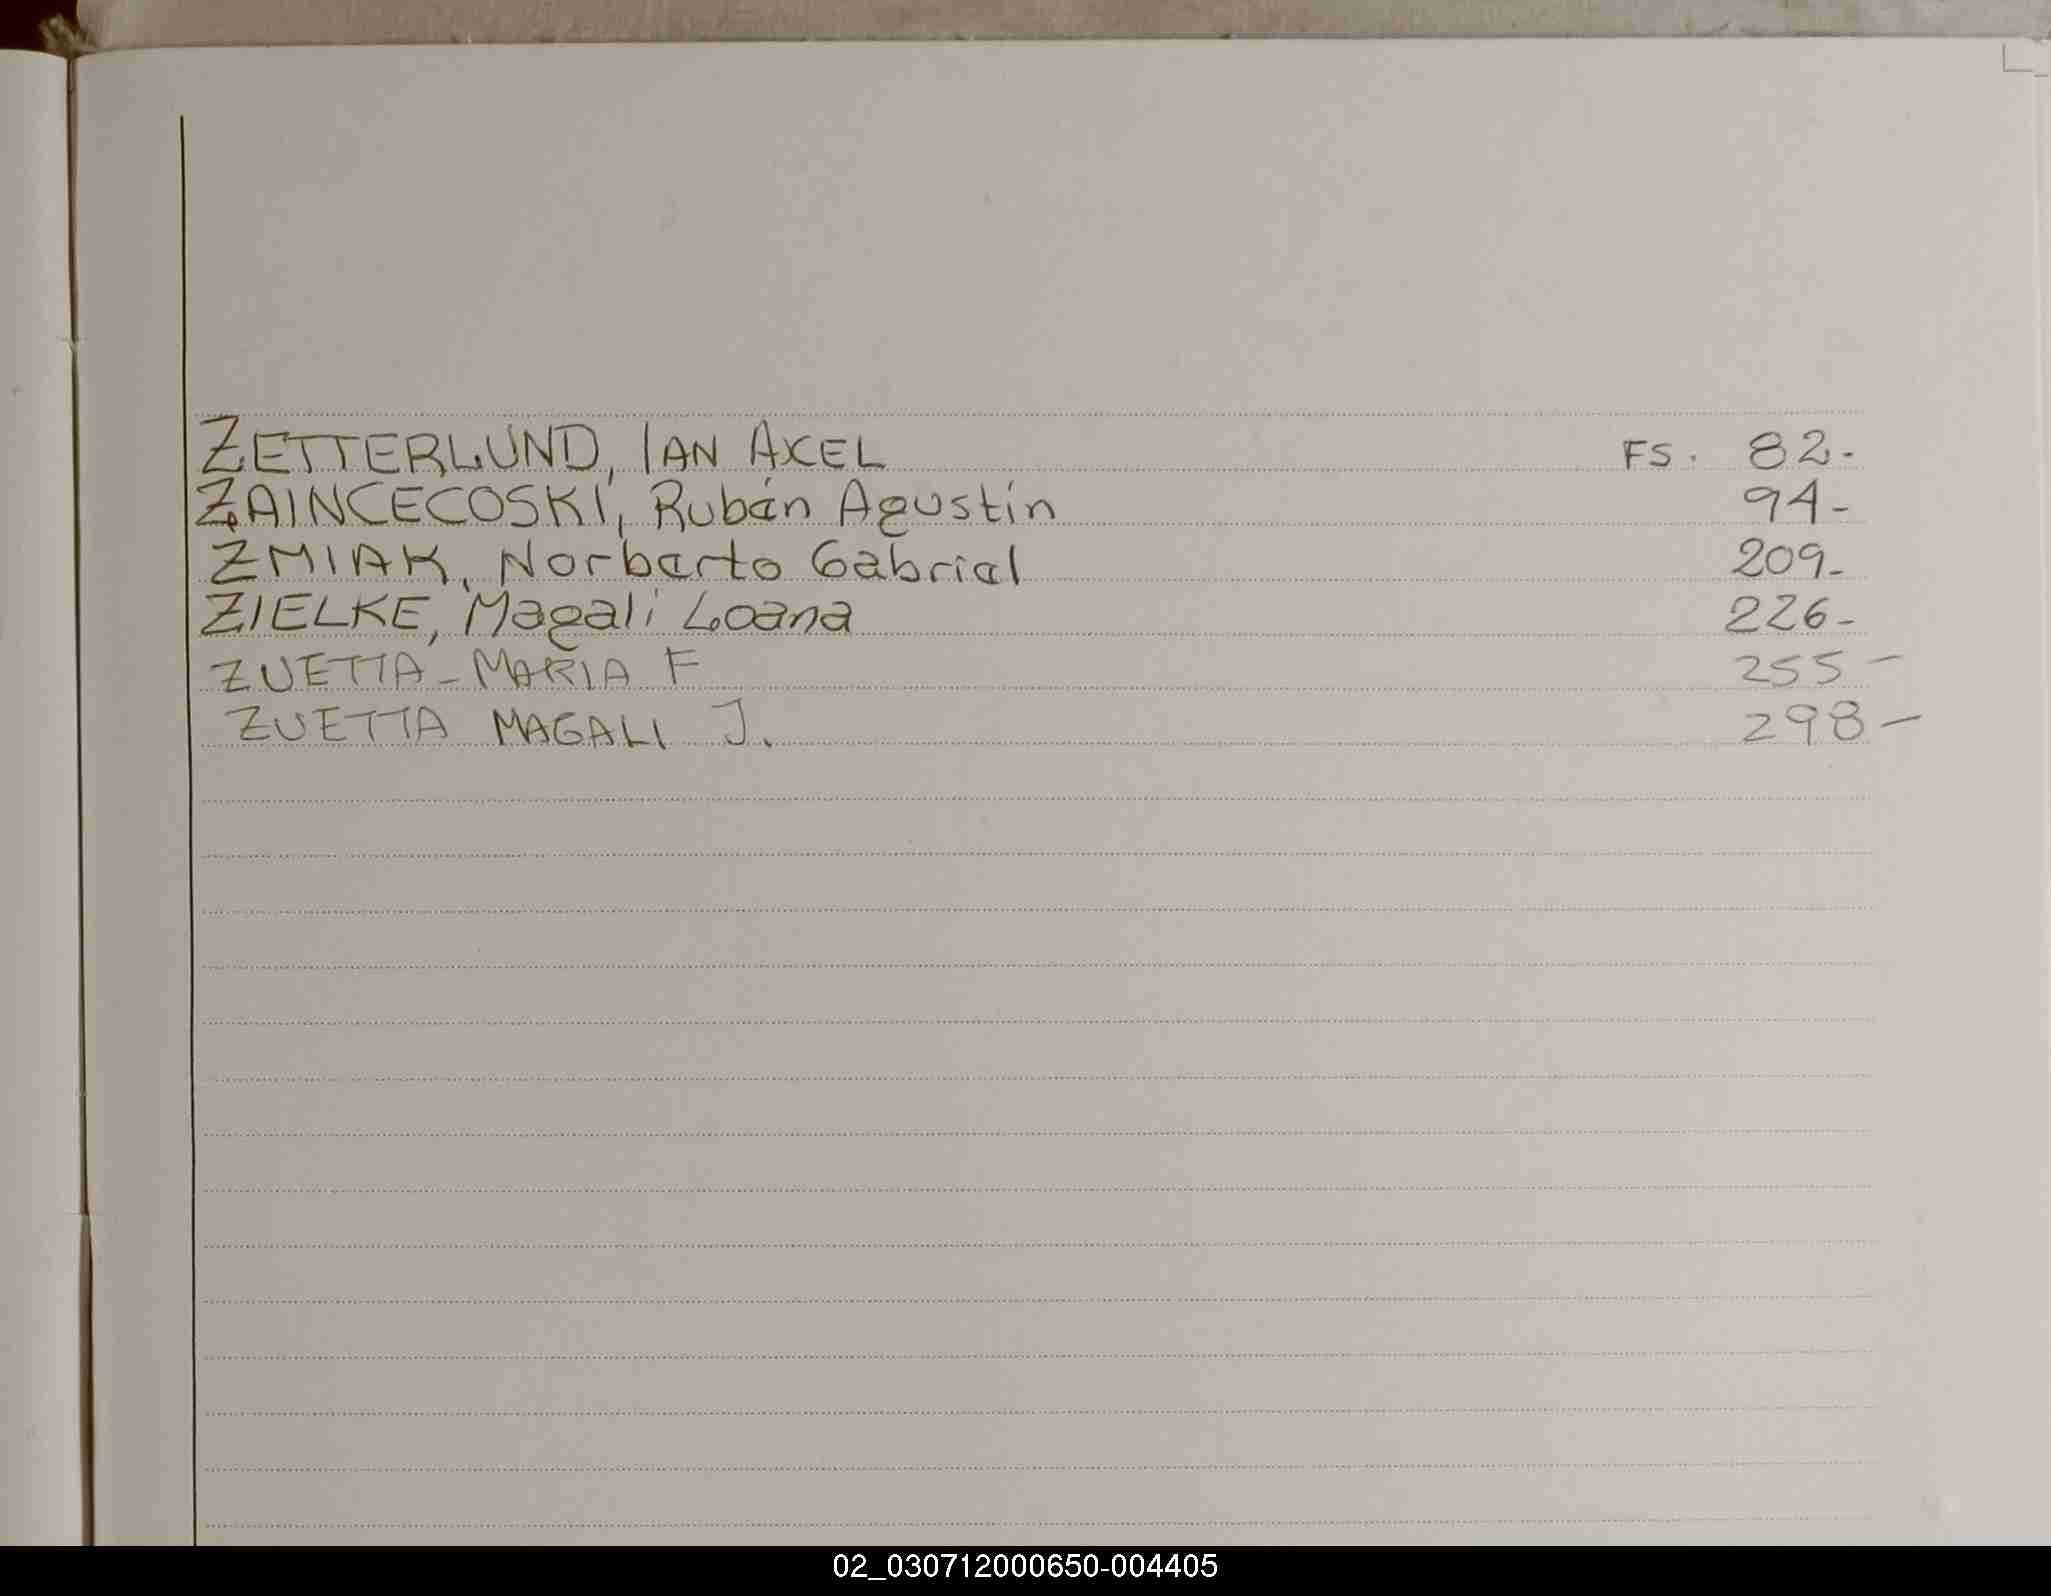 ZETTERLUND, IAN AXEL FS. 82-
ZAINCECOSKI, Rubén Agustín 94-
ZMIAK, Norberto Gabriel 209-
ZIELKE, Magali Loana 226-
ZUETTA - MARIA F 255-
ZUETTA MAGALI J. 298-
02_030712000650-004405